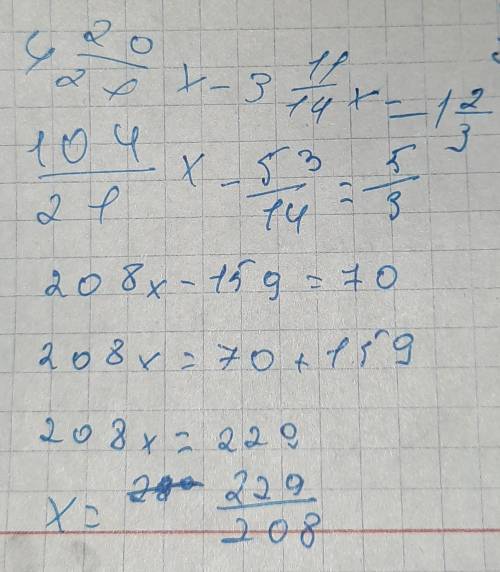 4 20/21 x - 3 11/14 x = 1 2/3
104/21 x - 53/14 = 5/3
208x - 159 = 70
208x = 70 + 159
208x = 229
x = 229/208